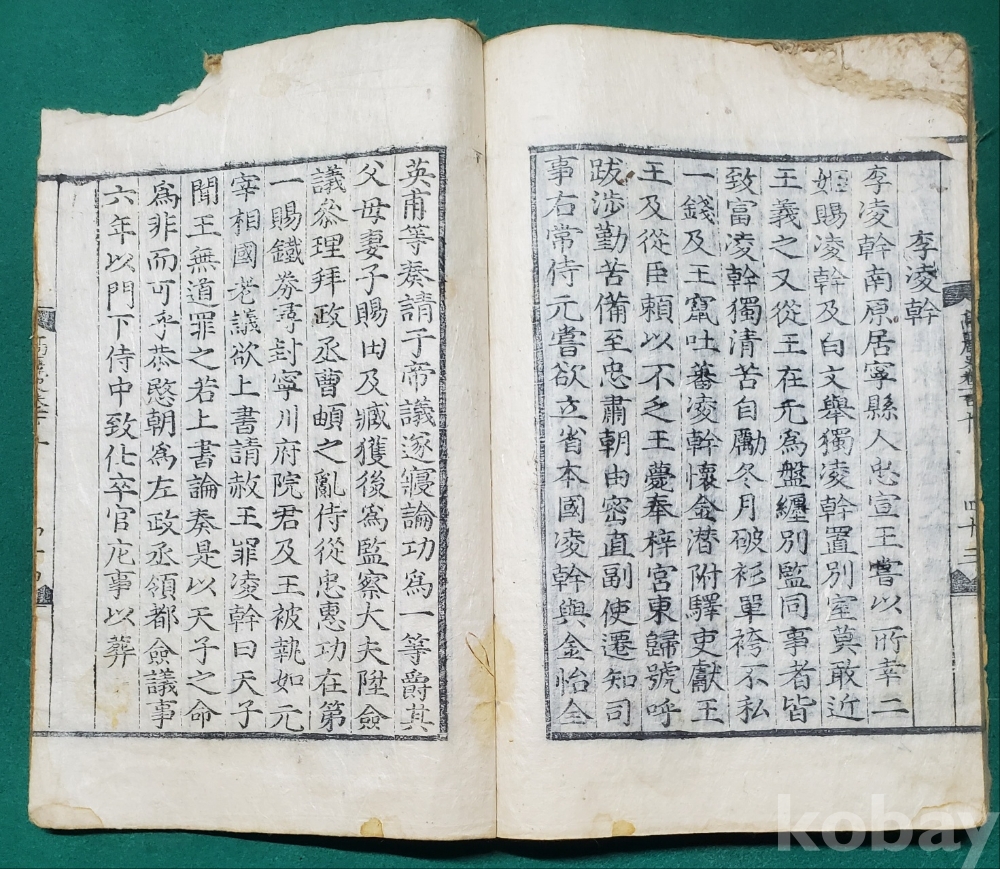 李凌幹
李凌幹南原居寧縣人忠宣王嘗以所幸二
姬賜凌幹及白文舉獨凌幹置別室莫敢近
王義之又從王在元為盤纏別監同事者皆
致富凌幹獨清苦自勵冬月破衫單袴不私
一錢及王竄吐蕃凌幹懷金潜附驛吏獻王
王及從臣頼以不乏王薨奉梓宮東歸號呼
跋涉勤苦備至忠肅朝由密直副使遷知司
事右常侍元嘗欲立省本國凌幹與金怡全
英甫等奏請于帝議遂寢論功為一等爵其
父母妻子賜田及臧獲後為監察大夫陞僉
議叅理拜政丞曹頔之亂侍從忠惠功在第
一賜鐵券尋封寧川府院君及王被執如元
宰相國老議欲上書請赦王罪凌幹曰天子
聞王無道罪之若上書論奏是以天子之命
爲非而可乎恭愍朝為左政丞領都僉議事
六年以門下侍中致仕卒官庀事以葬
四十三
kobay